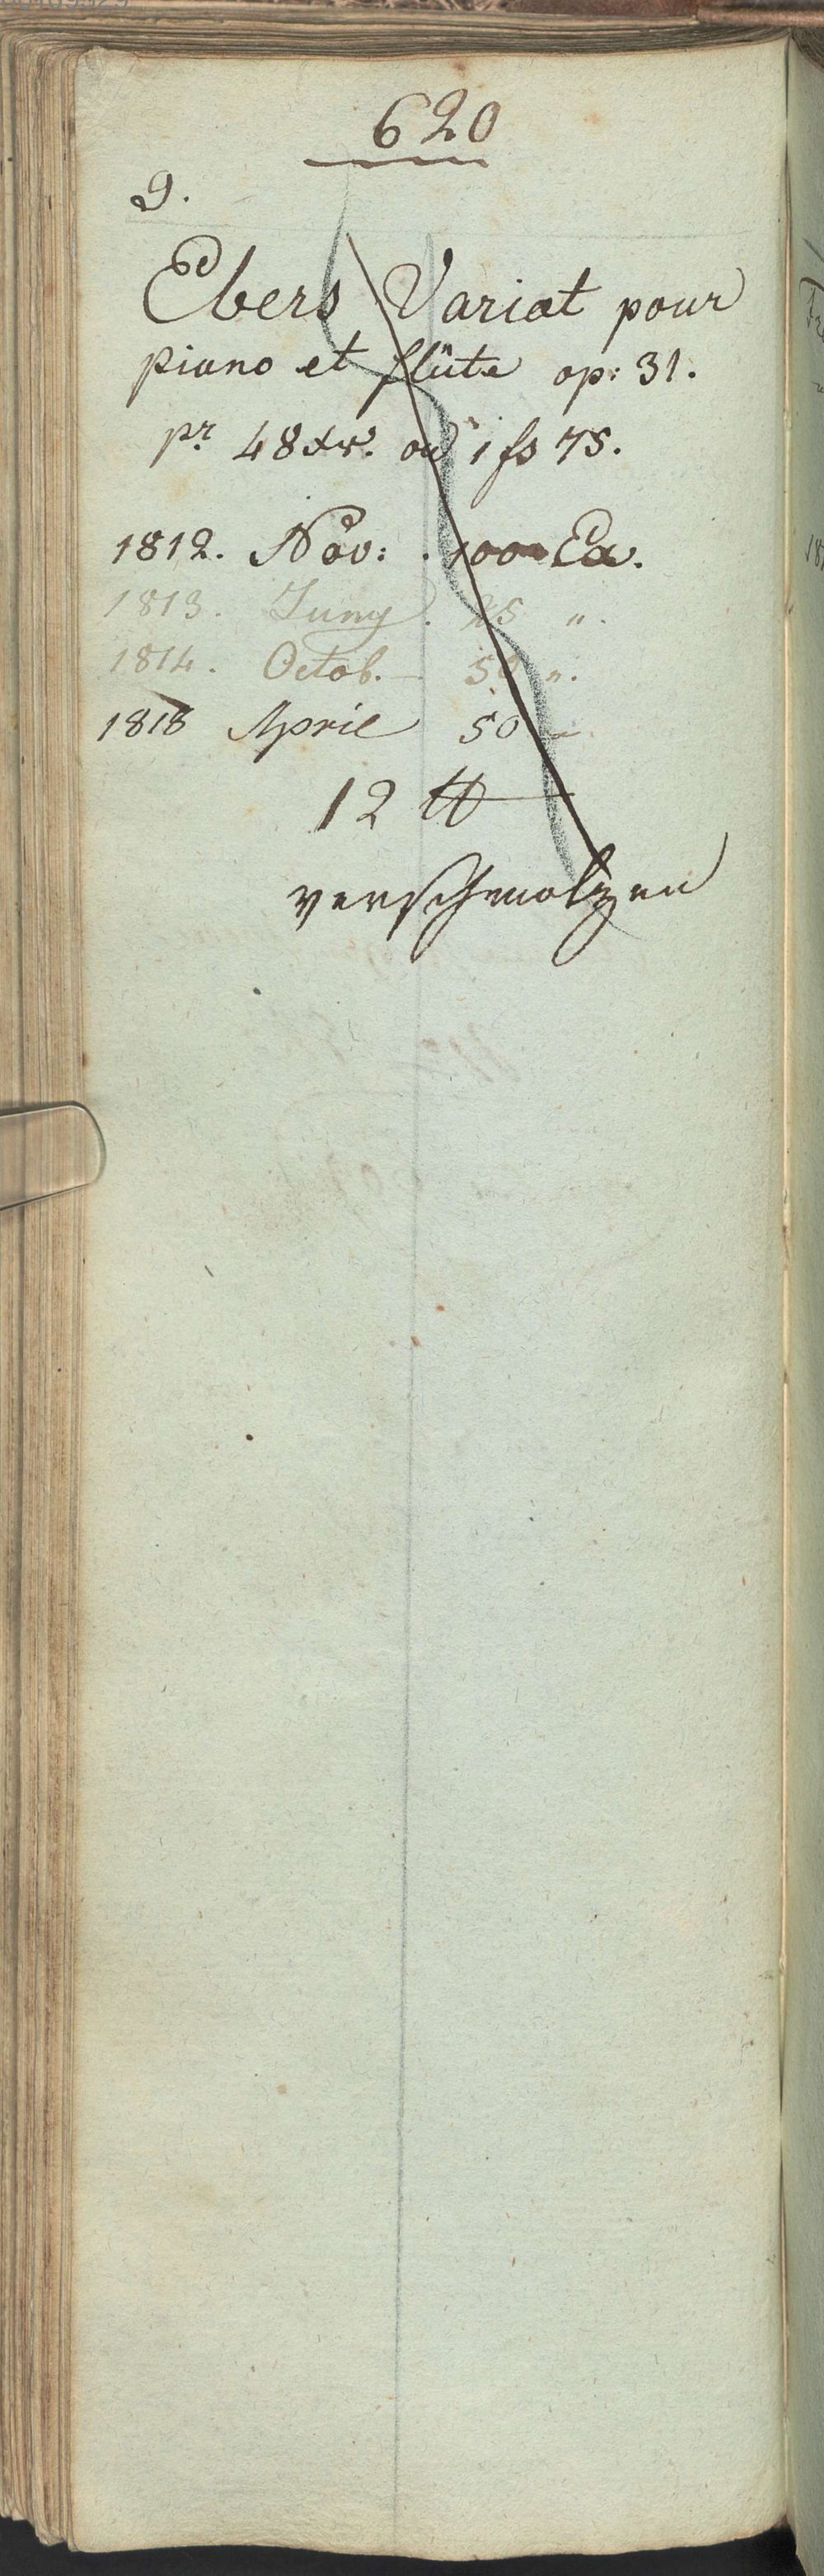 620
9.
Ebers Variat pour
piano et flûte op: 31.
pr 48 xr. od 1 fs 75.
1812. Nov: . 100 Ex.
1813. Juny . 25 ".
1814. Octob. — 50 ".
1818 April 50 —
12 ℔
verschmolzen